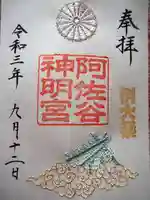 奉拝
例大祭
阿佐谷
神明宮
令和三年 九月十二日